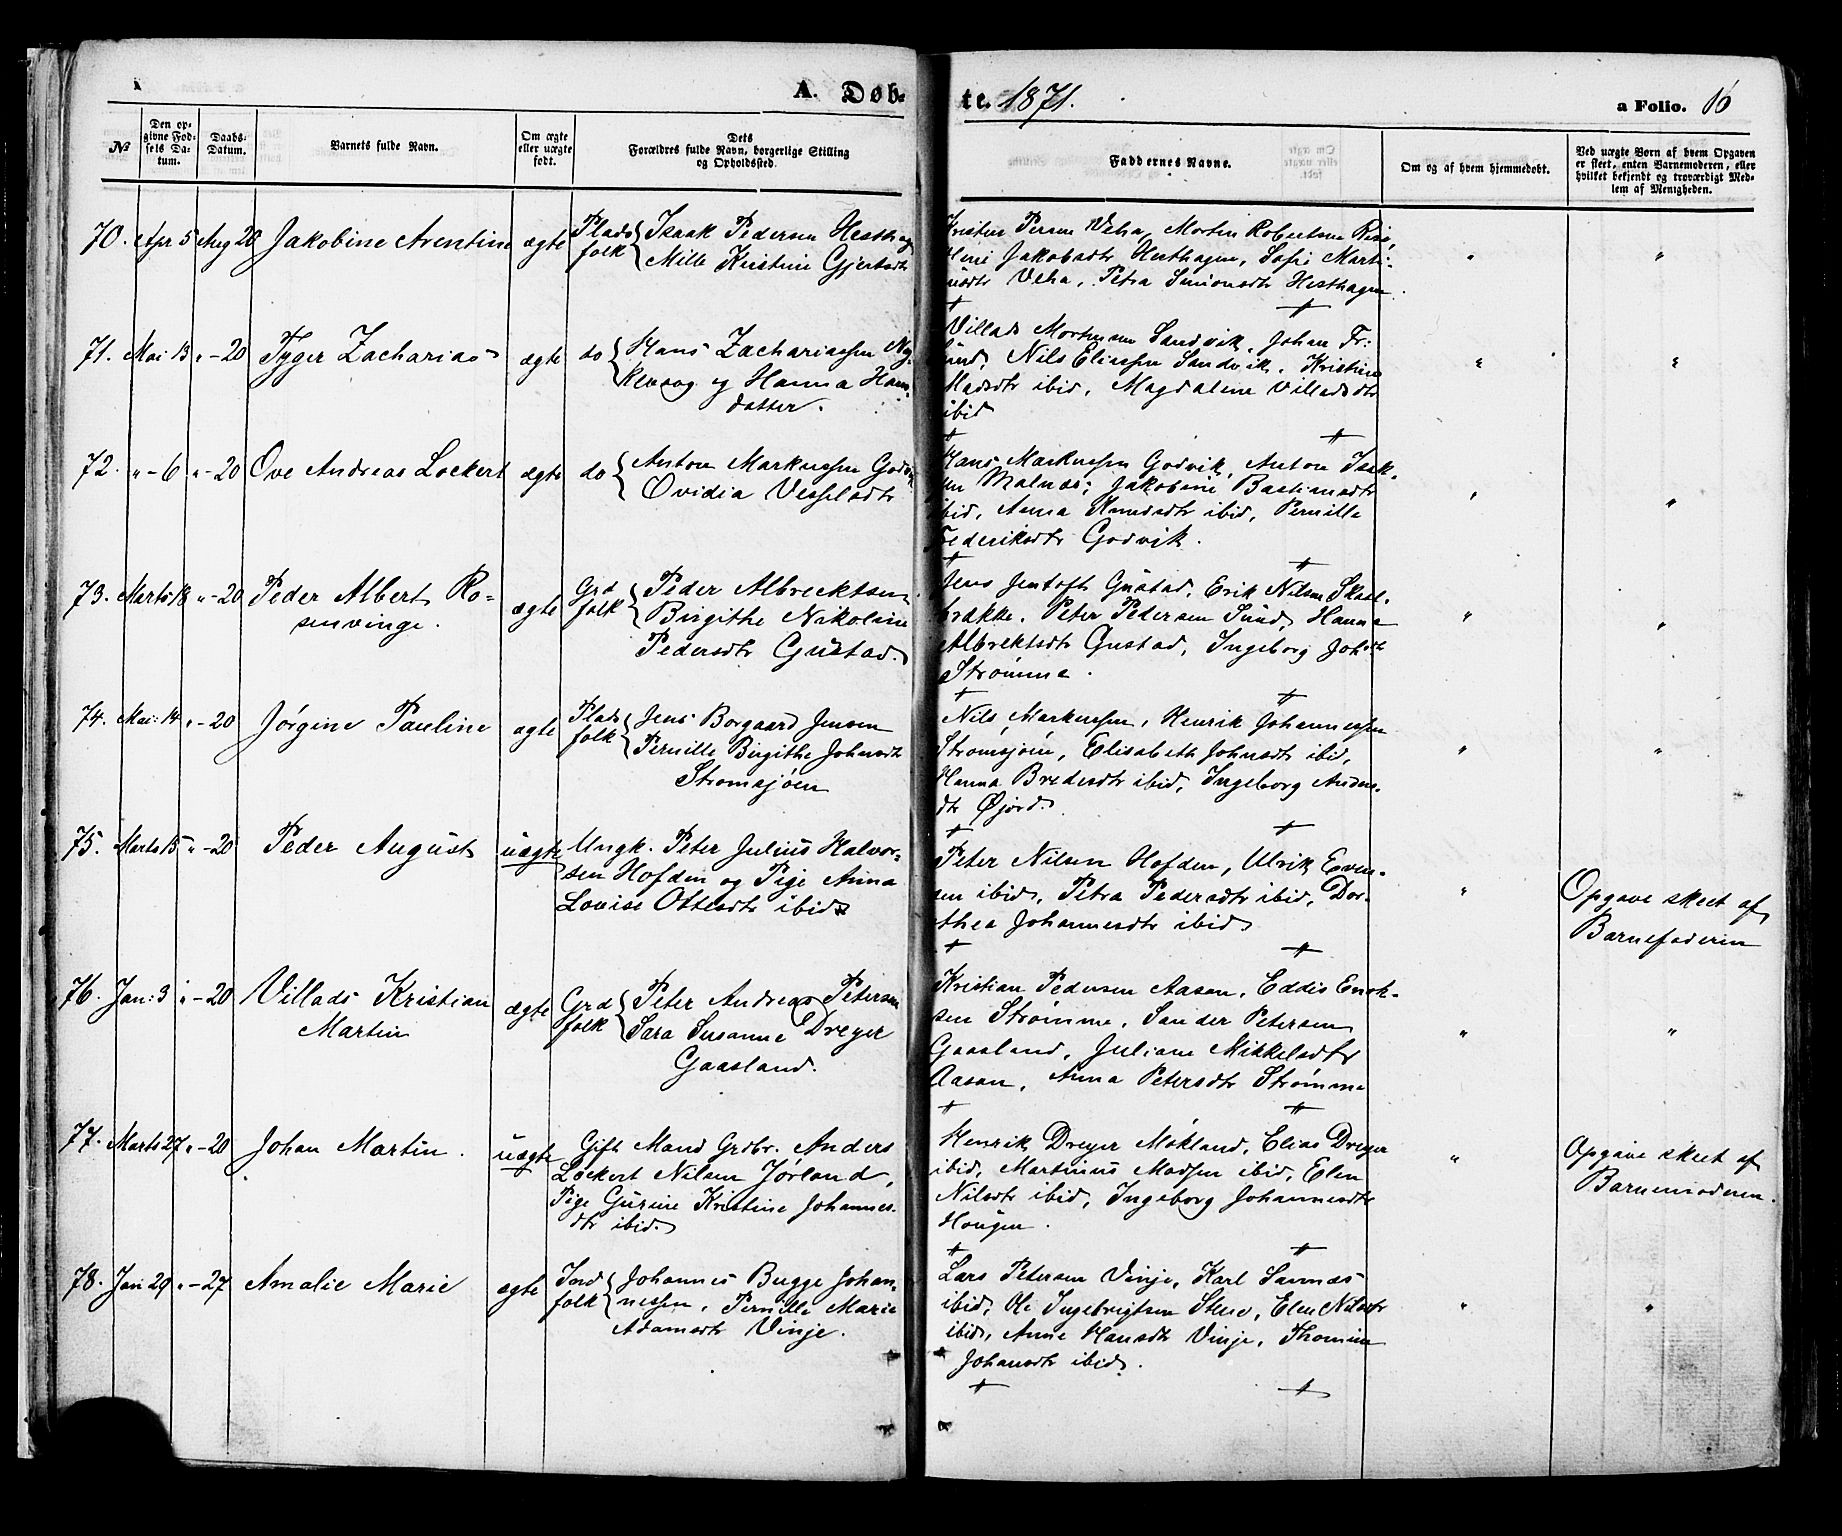 A. Døb-
te. 1871.
a Folio. 16
No
Den opgivne Fødsels Datum.
Daabs-Datum.
Barnets fulde Navn.
Om ægte eller uægte født.
Dets Forældres fulde Navn, borgerlige Stilling og Opholdssted.
Faddernes Navne.
Om og af hvem hjemmedøbt.
Ved uægte Børn af hvem Opgaven er skeet, enten Barnemoderen, eller hvilket bekjendt og troværdigt Medlem af Menigheden.
70. Apr 5 Aug 20 Jakobine Arentine ægte Plads folk
Israk Pedersen Hesthag
Mille Kristine Gjertsdtr
Kristen Veha, Morten Robertsen
Jakobsdtr Hesthagen, Sofie Marti-
nsdtr Veha, Petra Simonsdtr Hesthagen.
71. Mai 13 " - 20 Tyger Zacharias ægte do
Hans Zachariassen Ny-
kevaag og Hanna Hans-
datter.
Villads Mortensen Sandvik, Johan Fr:
ibid, Nils Eliassen Sandvik, Kristine
Madsdtr ibid, Magdalene Villadsdtr
ibid
72. " - 6 " - 20 Ove Andreas Lockert ægte do
Anton Markussen Godvik
Ovidia Vesselsdtr
Hans Markussen Godvik, Anton Isak-
sen Malnæs, Jakobine Bastiansdtr
ibid, Anna Knudsdtr ibid, Pernille
Frederiksdtr Godvik.
73. Marts 18 " - 20 Peder Albert Ro-
senvinge. ægte Grd folk
Peder Albrecktsen
Birgithe Nikoline
Pedersdtr Gustad.
Jens Jentoft Gustad, Erik Nilsen Skaal-
brække, Peter Pedersen Sund, Hanna
Albrektsdtr Gustad, Ingeborg Johsdtr
Strømme.
74. Mai: 14 " - 20 Jørgine Pauline ægte Plads folk
Jens Borgaard Jensen
Pernille Birgithe Johnsdtr
Strømsjøen
Nils Markussen, Henrik Johannessen
Strømsjøen, Elisabeth Johnsdtr ibid,
Hanna Bredesdtr ibid, Ingeborg Anders-
dtr Øjord.
75. Marts 15 " - 20 Peder August uægte
Ungk. Peter Julius Halvor-
sen Hofden og Pige Anna
Lovise Ottesdtr ibid
Peter Nilsen Hofden, Ulrik Even-
sen ibid, Petra Pedersdtr ibid, Dor-
thea Johannesdtr ibid
Opgave skeet af
Barnefaderen
76. Jan: 3 " - 20 Villads Kristian
Martin ægte Grd folk
Peter Andreas Petersen
Sara Susanne Dreyer
Gaasland.
Kristian Pedersen Aasan, Eddis Enok-
sen Strømme, Sander Petersen
Gaasland, Juliane Mikkelsdtr
Aasan, Anna Petersdtr Strømme
77. Marts 27 " - 20 Johan Martin. uægte
Gift Mand Grdbr. Anders
Lockert Nilsen Jørland,
Pige Gurine Kristine Johannes-
dtr ibid.
Henrik Dreyer Møkland, Elias Dreyer
ibid, Martinus Madsen ibid, Elen
Nilsdtr ibid, Ingeborg Johannesdtr
Hougen.
Opgave skeet af
Barnemoderen.
78. Jan 29 " - 27 Amalie Marie ægte Ind folk
Johannes Bugge Johan-
nessen, Pernille Marie
Adamsdtr Vinje.
Lars Petersen Vinje, Karl Sannæs
ibid, Ole Ingebrigtsen Stene, Elen Nilsdtr
ibid, Anne Hansdtr Vinje, Thomine
Johansdtr ibid.